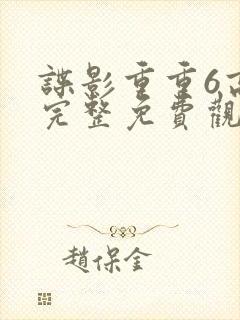 諜影重重6高
完整免費觀
趙保全